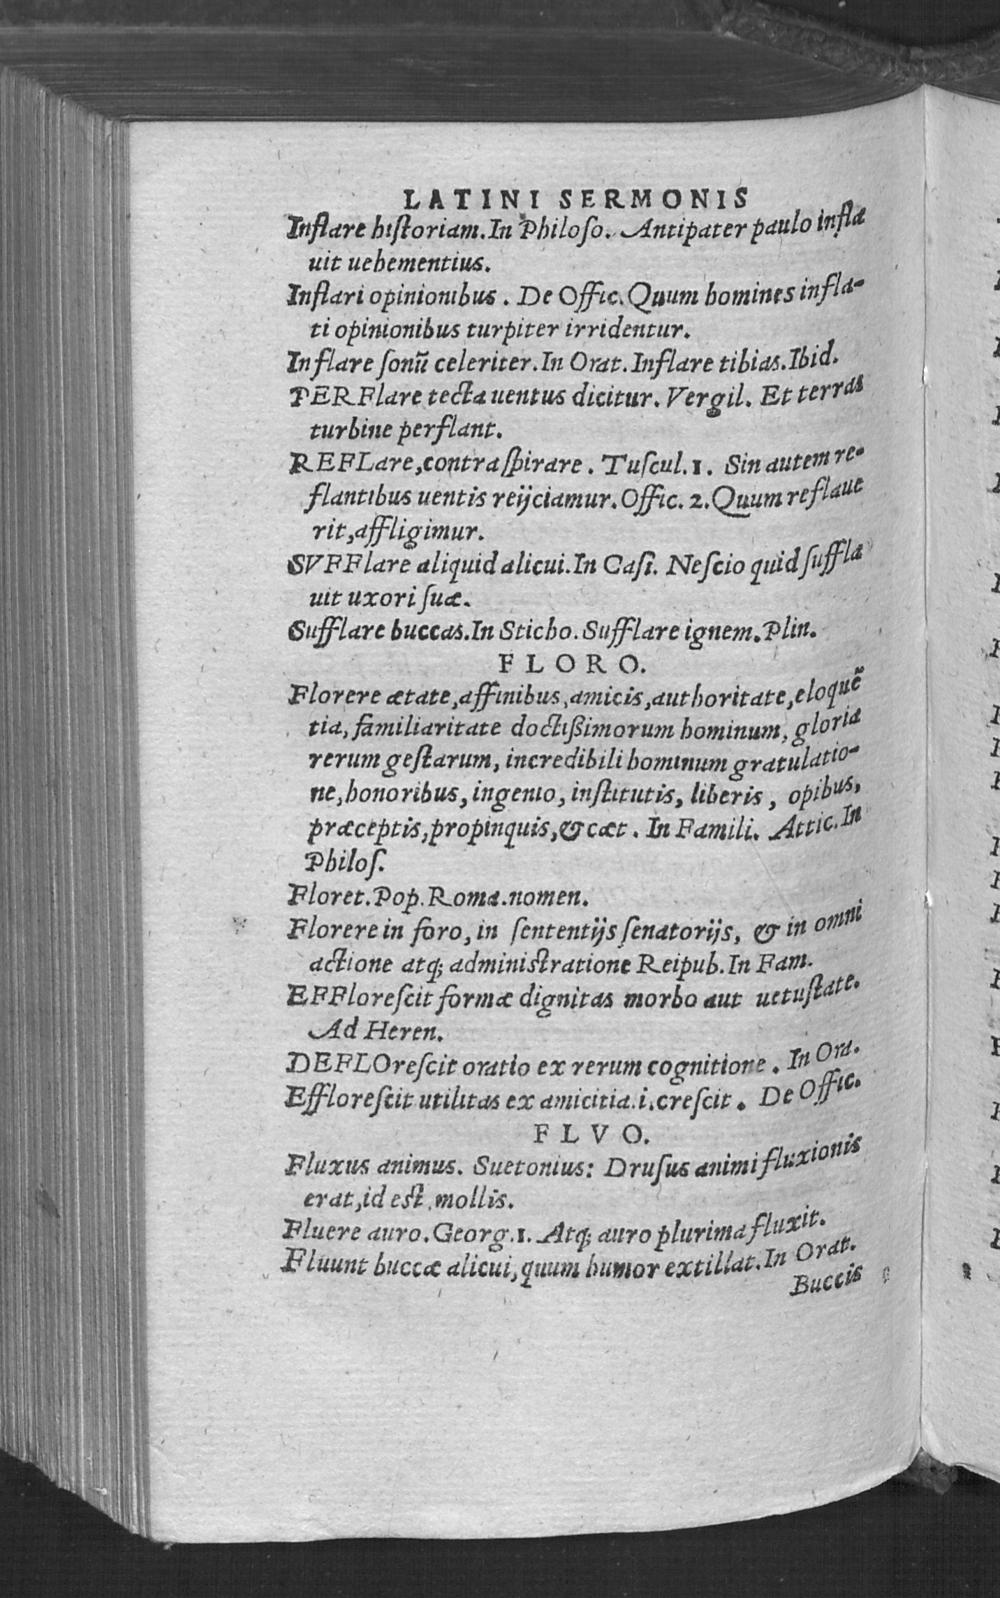 LATINI SERMONIS
Inflare historiam. In Philoso. Antipater paulo inflæ
uit uehementius.
Inflari opinionibus. De Offic. Quum homines infla-
ti opinionibus turpiter irridentur.
Inflare sonũ celeriter. In Orat. Inflare tibias. Ibid.
PERFlare tecta uentus dicitur. Vergil. Et terras
turbine perflant.
REFLare, contra spirare. Tuscul. 1. Sin autem re-
flantibus uentis reijciamur. Offic. 2. Quum reflaue
rit, affligimur.
SVFFlare aliquid alicui. In Casi. Nescio quid suffla
uit uxori suæ.
Sufflare buccas. In Sticho. Sufflare ignem. Plin.
FLORO.
Florere ætate, affinibus, amicis, authoritate, eloquẽ
tia, familiaritate doctißimorum hominum, gloria
rerum gestarum, incredibili hominum gratulatio-
ne, honoribus, ingenio, institutis, liberis, opibus,
præceptis, propinquis, & cæt. In Famili. Attic. In
Philos.
Floret. Pop. Roma. nomen.
Florere in foro, in sententijs senatorijs, & in omni
actione atq; administratione Reipub. In Fam.
EFFlorescit formæ dignitas morbo aut uetustate.
Ad Heren.
DEFLOrescit oratio ex rerum cognitione. In Ora.
Efflorescit utilitas ex amicitia. i. crescit. De Offic.
FLVO.
Fluxus animus. Suetonius: Drusus animi fluxionis
erat, id est, mollis.
Fluere auro. Georg. 1. Atq; auro plurima fluxit.
Fluunt buccæ alicui, quum humor extillat. In Orat.
Buccis